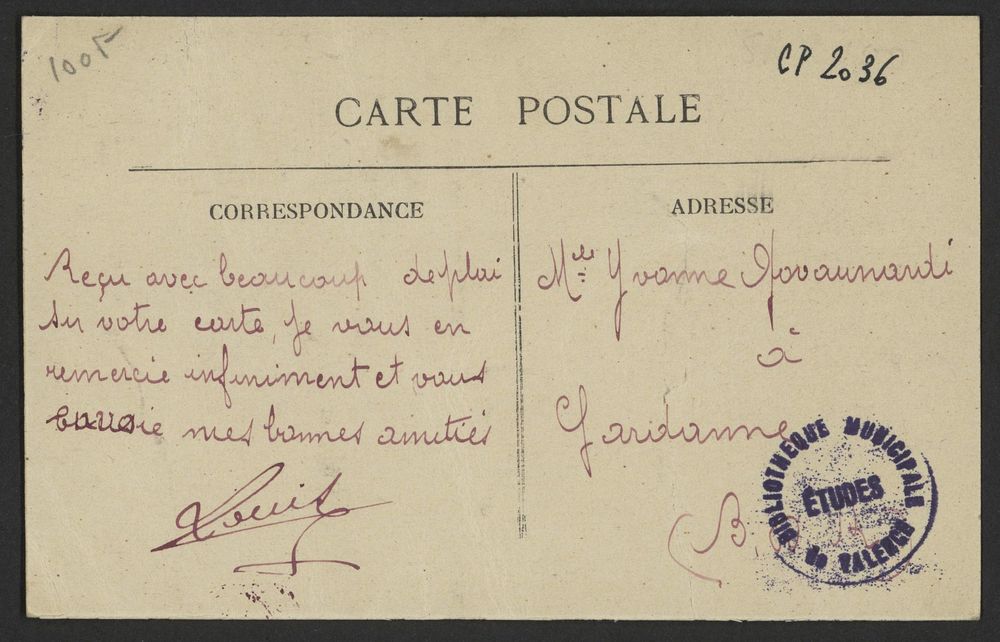 100F
CP 2036
CARTE POSTALE
CORRESPONDANCE
Reçu avec beaucoup de plai
sir votre carte, je vous en
remercie infiniment et vous
envoie mes bonnes amitiés
Louis
ADRESSE
Mlle Yvonne
à
Gardanne
(B.
BIBLIOTHÈQUE MUNICIPALE
ÉTUDES
de TALENCE